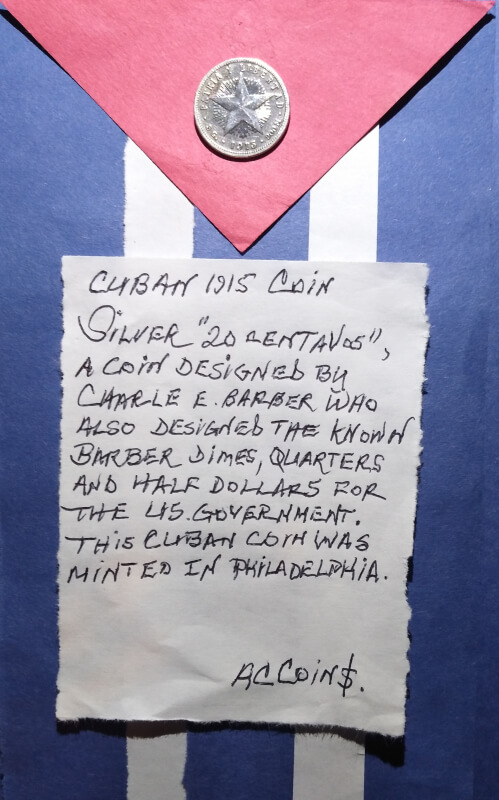 PATRIA Y LIBERTAD
1915
CUBAN 1915 COIN
SILVER "20 CENTAVOS",
A COIN DESIGNED BY
CHARLE E. BARBER WHO
ALSO DESIGNED THE KNOWN
BARBER DIMES, QUARTERS
AND HALF DOLLARS FOR
THE US. GOVERNMENT.
THIS CUBAN COIN WAS
MINTED IN PHILADELPHIA.
RCCOIN$.